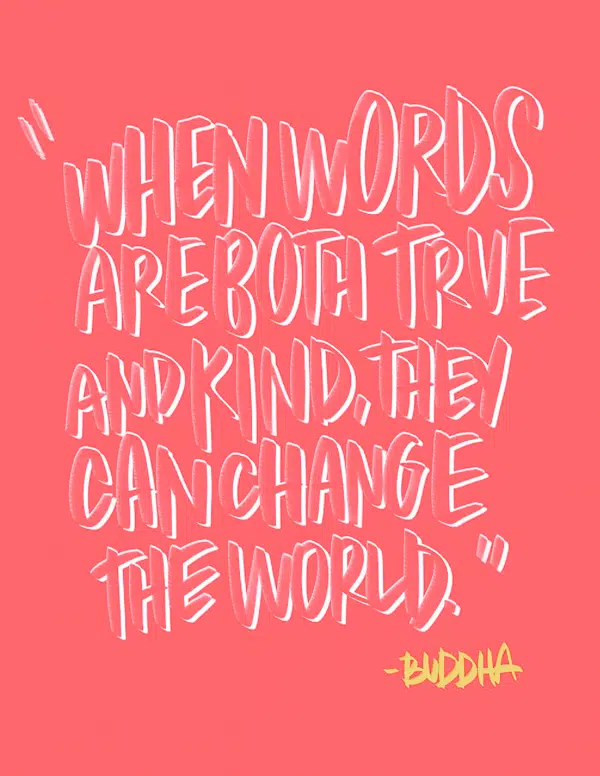 "WHEN WORDS
ARE BOTH TRUE
AND KIND, THEY
CAN CHANGE
THE WORLD."
-BUDDHA